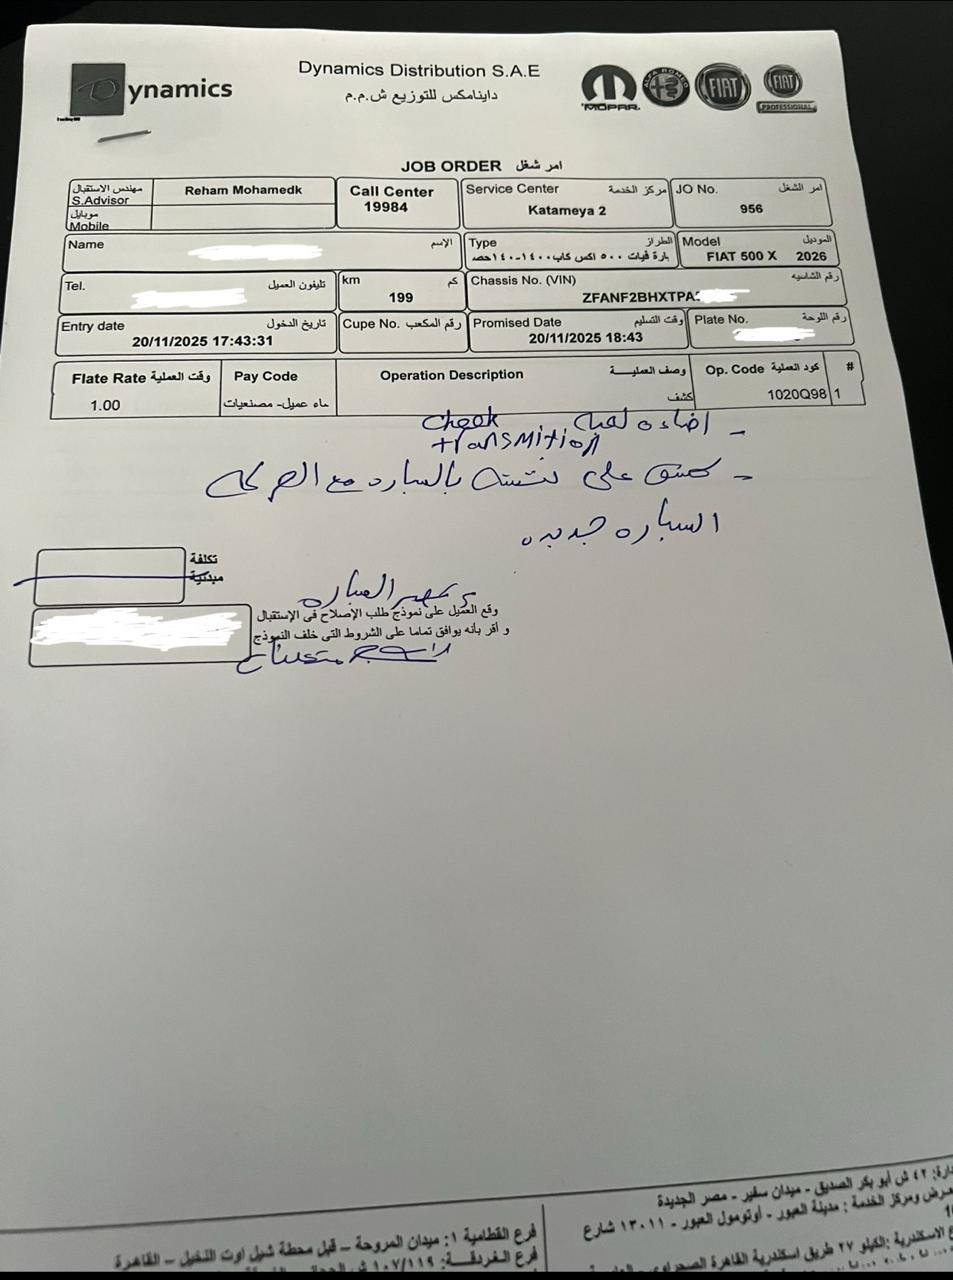 Dynamics
Dynamics Distribution S.A.E
داينامكس للتوزيع ش.م.م
MOPAR
ALFA ROMEO
FIAT
FIAT
PROFESSIONAL
JOB ORDER امر شغل
مهندس الاستقبال
S.Advisor
Reham Mohamedk
موبايل
Mobile
Call Center
19984
Service Center مركز الخدمة
Katameya 2
JO No. امر الشغل
956
Name الإسم
Type الطراز
بارة فيات ٥٠٠ اكس كاب١٤٠٠-١٤٠حصـ
Model الموديل
FIAT 500 X 2026
Tel. تليفون العميل
km كم
199
Chassis No. (VIN) رقم الشاسيه
ZFANF2BHXTPA
Entry date تاريخ الدخول
20/11/2025 17:43:31
Cupe No. رقم المكعب
Promised Date وقت التسليم
20/11/2025 18:43
Plate No. رقم اللوحة
Flate Rate وقت العملية
Pay Code
Operation Description وصف العمليـــة
Op. Code كود العملية
#
1.00
ـاء عميل- مصنعيات
كشف
1020Q98
1
- اضاءه لمبه check
transmition
- السياره مع الحركه
السياره جديده
تكلفة
مبدئية
السياره
وقع العميل على نموذج طلب الإصلاح فى الإستقبال
و أقر بأنه يوافق تماما على الشروط التى خلف النموذج
دارة: ٤٢ ش أبو بكر الصديق - ميدان سفير - مصر الجديدة
عرض ومركز الخدمة : مدينة العبور - أوتومول العبور - ١٣٠١١ شارع
الاسكندرية :الكيلو ٢٧ طريق اسكندرية القاهرة الصحراوى
فرع القطامية ١: ميدان المروحة – قبل محطة شيل اوت النخيل – القاهرة
فرع الغردقـــة: ١٠٧/١١٩ ش